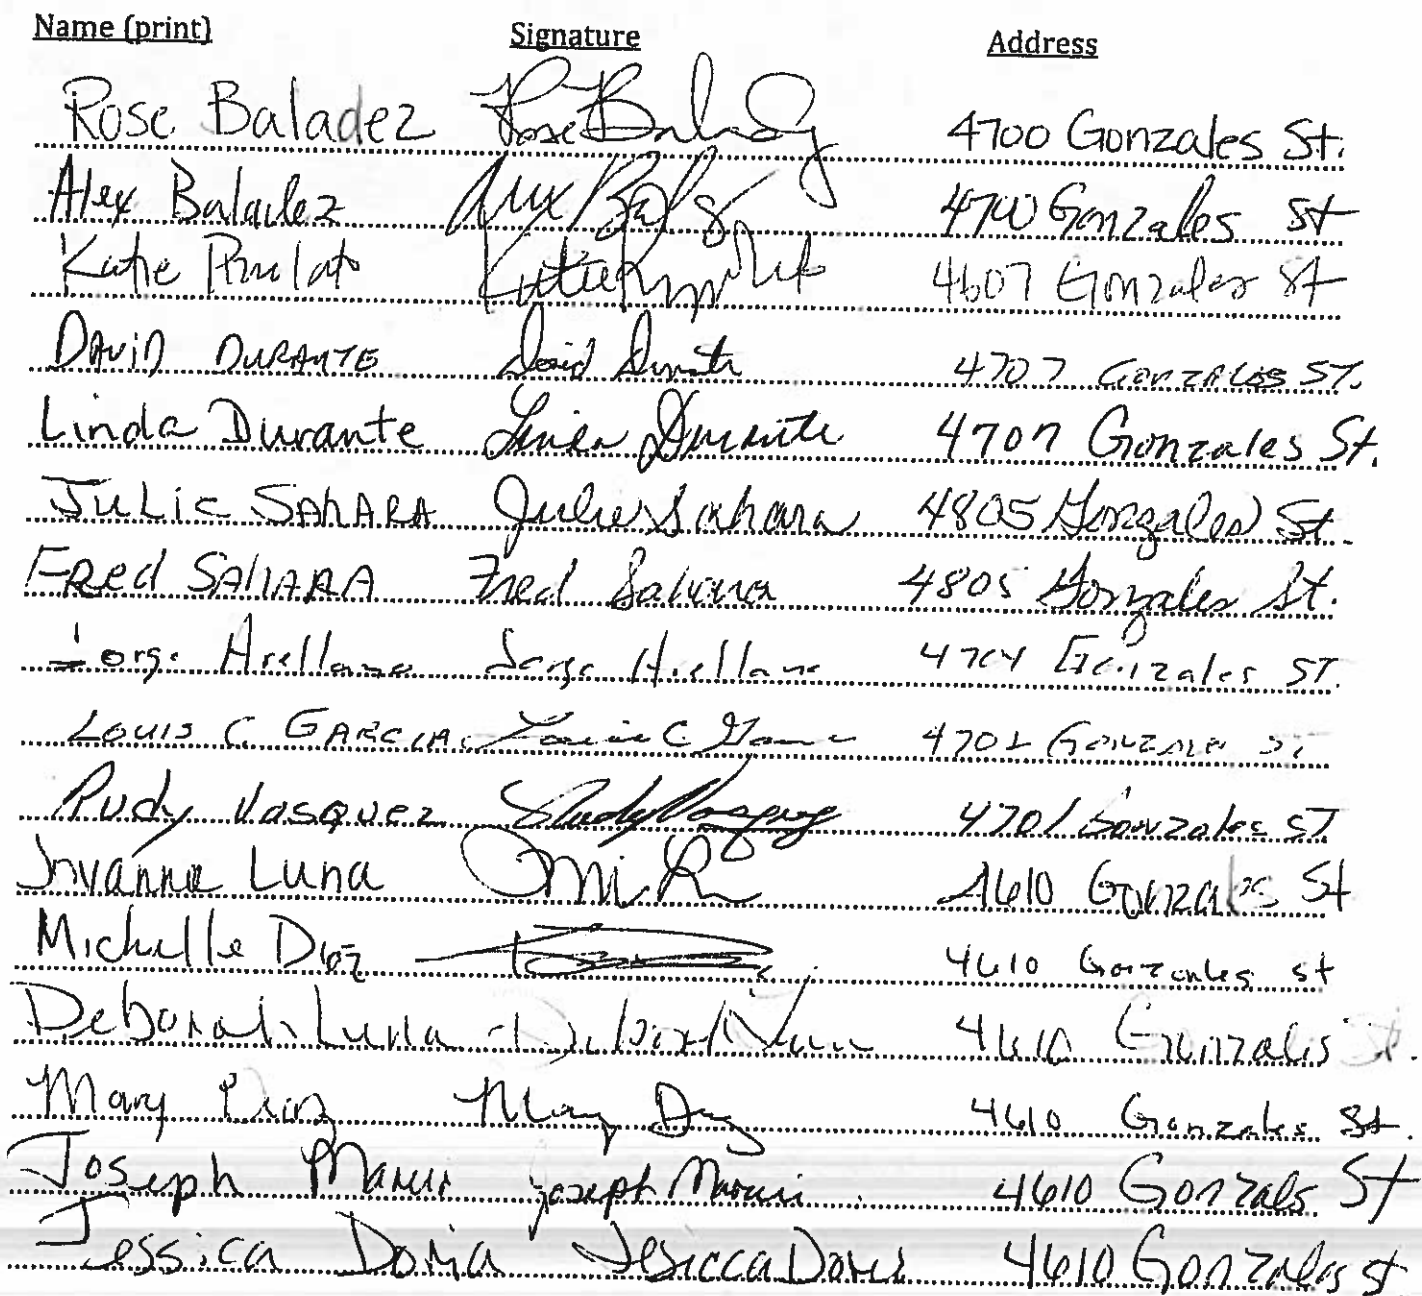 Name (print) Signature Address
Rose Baladez Rose Baladez 4700 Gonzales St.
Alex Baladez Alex 4700 Gonzales St
Katie Katie 4607 Gonzales St
DAVID DURANTE David Durante 4707 GONZALES ST.
Linda Durante Linda Durante 4707 Gonzales St.
JuLie SAhARA Julie Sahara 4805 Gonzales St.
FRed SAHARA Fred Sahara 4805 Gonzales St.
Jorge Arellano Jorge Arellano 4704 Gonzales ST.
LOUIS C. GARCIA Louis C. 4702 GONZALES
Rudy Vasquez Rudy Vasquez 4701 Gonzales ST
Luna 4610 Gonzales St
Michelle Diaz 4610 Gonzales st
Deborah Luna Deborah Luna 4610 Gonzales St.
Mary Diaz Mary Diaz 4610 Gonzales St.
Joseph Joseph 4610 Gonzals St
Jessica Doria Jesicca Doria 4610 Gonzales St